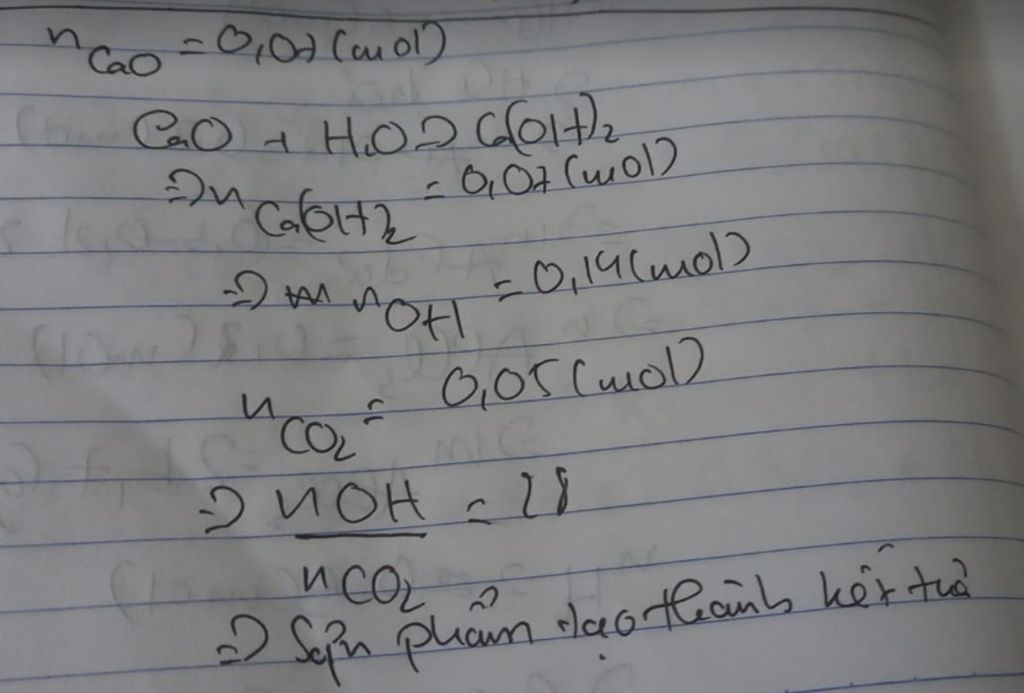 nCaO = 0,07 (mol)
CaO + H2O => Ca(OH)2
=> nCa(OH)2 = 0,07 (mol)
=> nOH = 0,14 (mol)
nCO2 = 0,05 (mol)
=> nOH = 28
nCO2
=> Sản phẩm tạo thành kết tủa